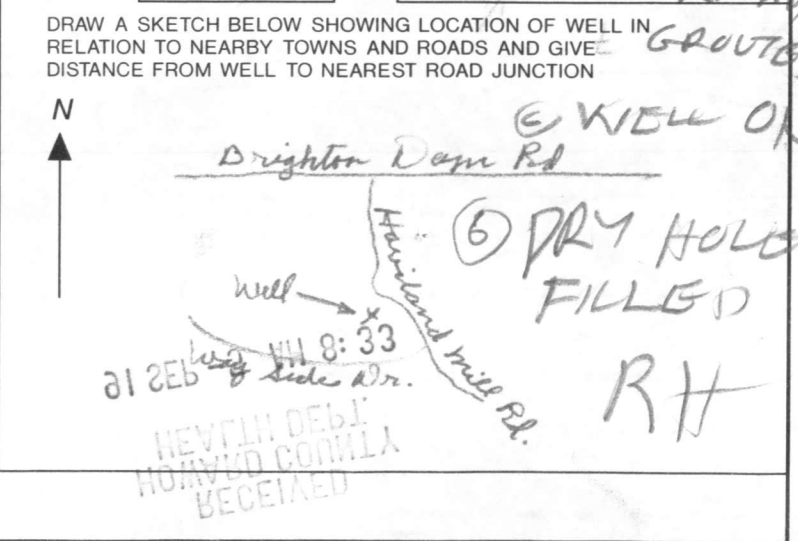 DRAW A SKETCH BELOW SHOWING LOCATION OF WELL IN
RELATION TO NEARBY TOWNS AND ROADS AND GIVE
DISTANCE FROM WELL TO NEAREST ROAD JUNCTION
GROUTE
N
WELL
Brighton Dam Rd
6 DRY HOLE
FILLED
Haviland Mill Rd.
Well
x
8:33
91 SEP
Way Side Dr.
RH
HEALTH DEPT.
HOWARD COUNTY
RECEIVED